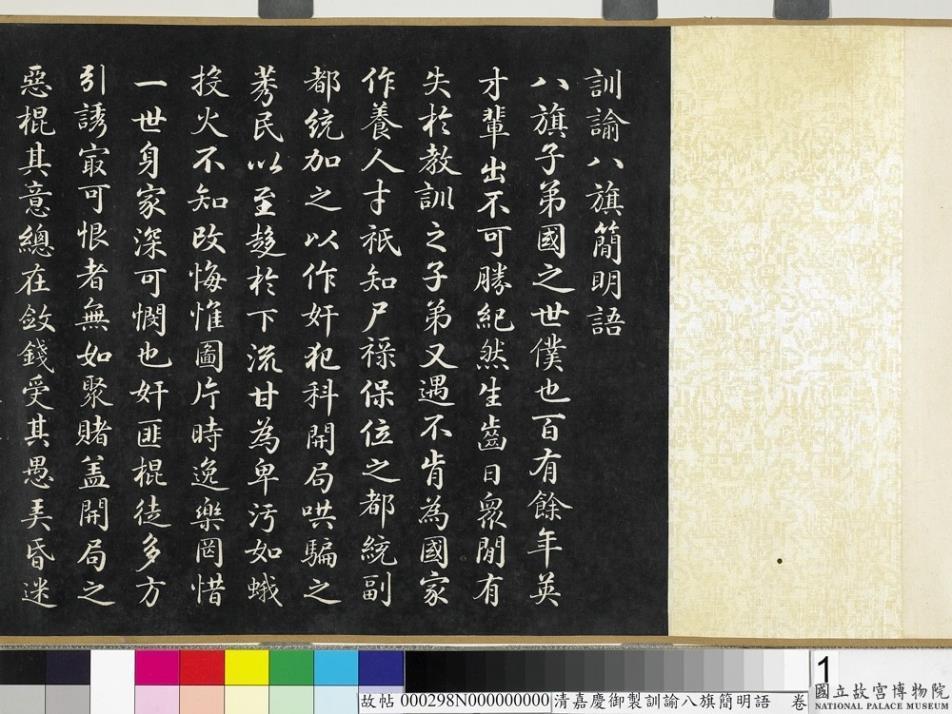 訓諭八旗簡明語
八旗子弟國之世僕也百有餘年英
才輩出不可勝紀然生齒日衆閒有
失於教訓之子弟又遇不肯為國家
作養人才祇知尸祿保位之都統副
都統加之以作奸犯科開局哄騙之
莠民以至趍於下流甘為卑污如蛾
投火不知改悔惟圖片時逸樂罔惜
一世身家深可憫也奸匪棍徒多方
引誘冣可恨者無如聚賭盖開局之
惡棍其意總在斂錢受其愚弄昏迷
故帖 000298N000000000 清嘉慶御製訓諭八旗簡明語 卷
1
國立故宮博物院
NATIONAL PALACE MUSEUM